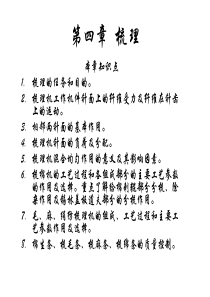 第四章 梳理
本章知识点
1. 梳理的任务和目的。
2. 梳理机工作机件针面上的纤维受力及纤维在针齿
上的运动。
3. 相邻两针面的基本作用。
4. 梳理机针面的负荷及分配。
5. 梳理机混合均匀作用的意义及其影响因素。
6. 梳棉机的工艺过程和各组成部分的主要工艺参数
的作用及选择。重点了解给棉刺辊部分分梳、除
杂作用及锡林盖板道夫部分的分梳作用。
7. 毛、麻、绢纺梳理机的组成、工艺过程和主要工
艺参数的作用及选择。
8. 棉生条、梳毛条、梳麻条、梳绵条的质量控制。